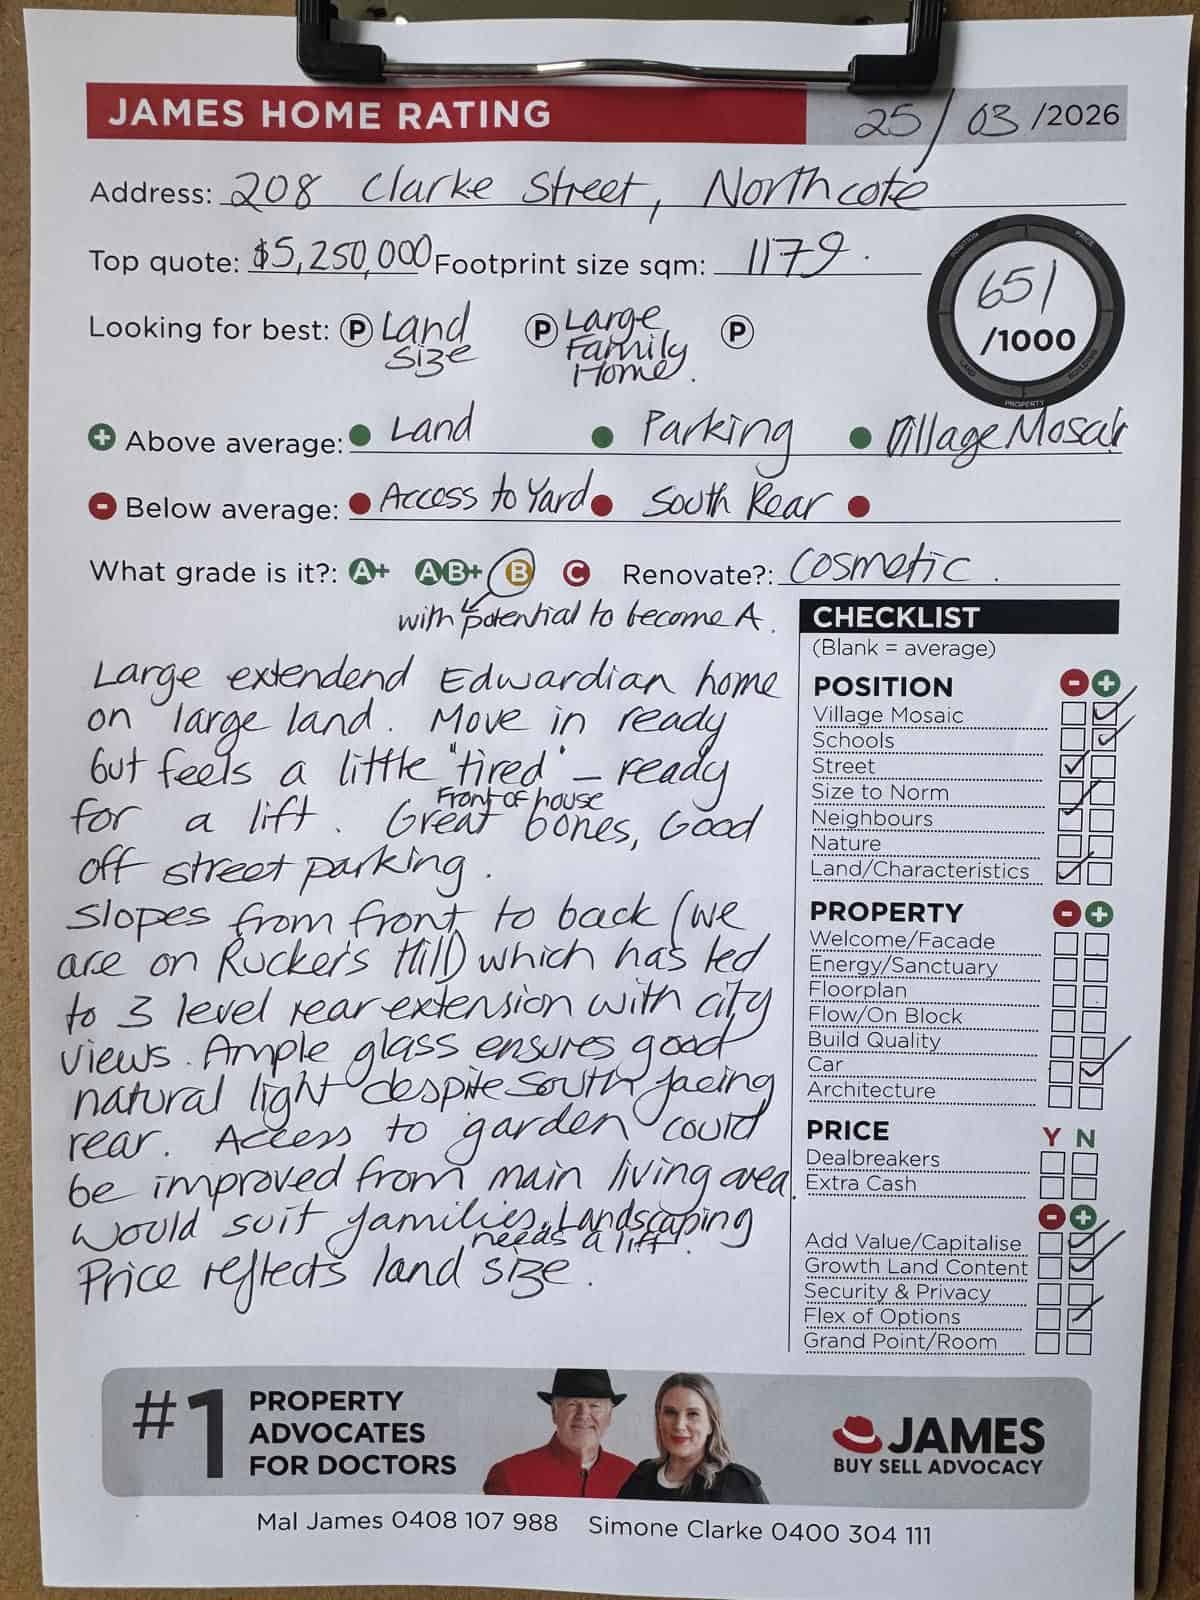 JAMES HOME RATING 25/03/2026
Address: 208 Clarke Street, Northcote
Top quote: $5,250,000 Footprint size sqm: 1179.
Looking for best: P Land Size P Large Family Home. P
651/1000
POSITION PRICE BUILDING PROPERTY LAND
+ Above average: Land Parking Village Mosaic
- Below average: Access to Yard South Rear
What grade is it?: A+ AB+ B C Renovate?: Cosmetic.
with potential to become A.
Large extendend Edwardian home
on large land. Move in ready
but feels a little "tired" – ready
for a lift. Great Front of house bones, Good
off street parking.
Slopes from front to back (we
are on Rucker's Hill) which has led
to 3 level rear extension with city
views. Ample glass ensures good
natural light despite South facing
rear. Access to garden could
be improved from main living area.
Would suit families. Landscaping
needs a lift.
Price reflects land size.
CHECKLIST
(Blank = average)
POSITION - +
Village Mosaic
Schools
Street
Size to Norm
Neighbours
Nature
Land/Characteristics
PROPERTY - +
Welcome/Facade
Energy/Sanctuary
Floorplan
Flow/On Block
Build Quality
Car
Architecture
PRICE Y N
Dealbreakers
Extra Cash
- +
Add Value/Capitalise
Growth Land Content
Security & Privacy
Flex of Options
Grand Point/Room
#1 PROPERTY
ADVOCATES
FOR DOCTORS
JAMES
BUY SELL ADVOCACY
Mal James 0408 107 988 Simone Clarke 0400 304 111